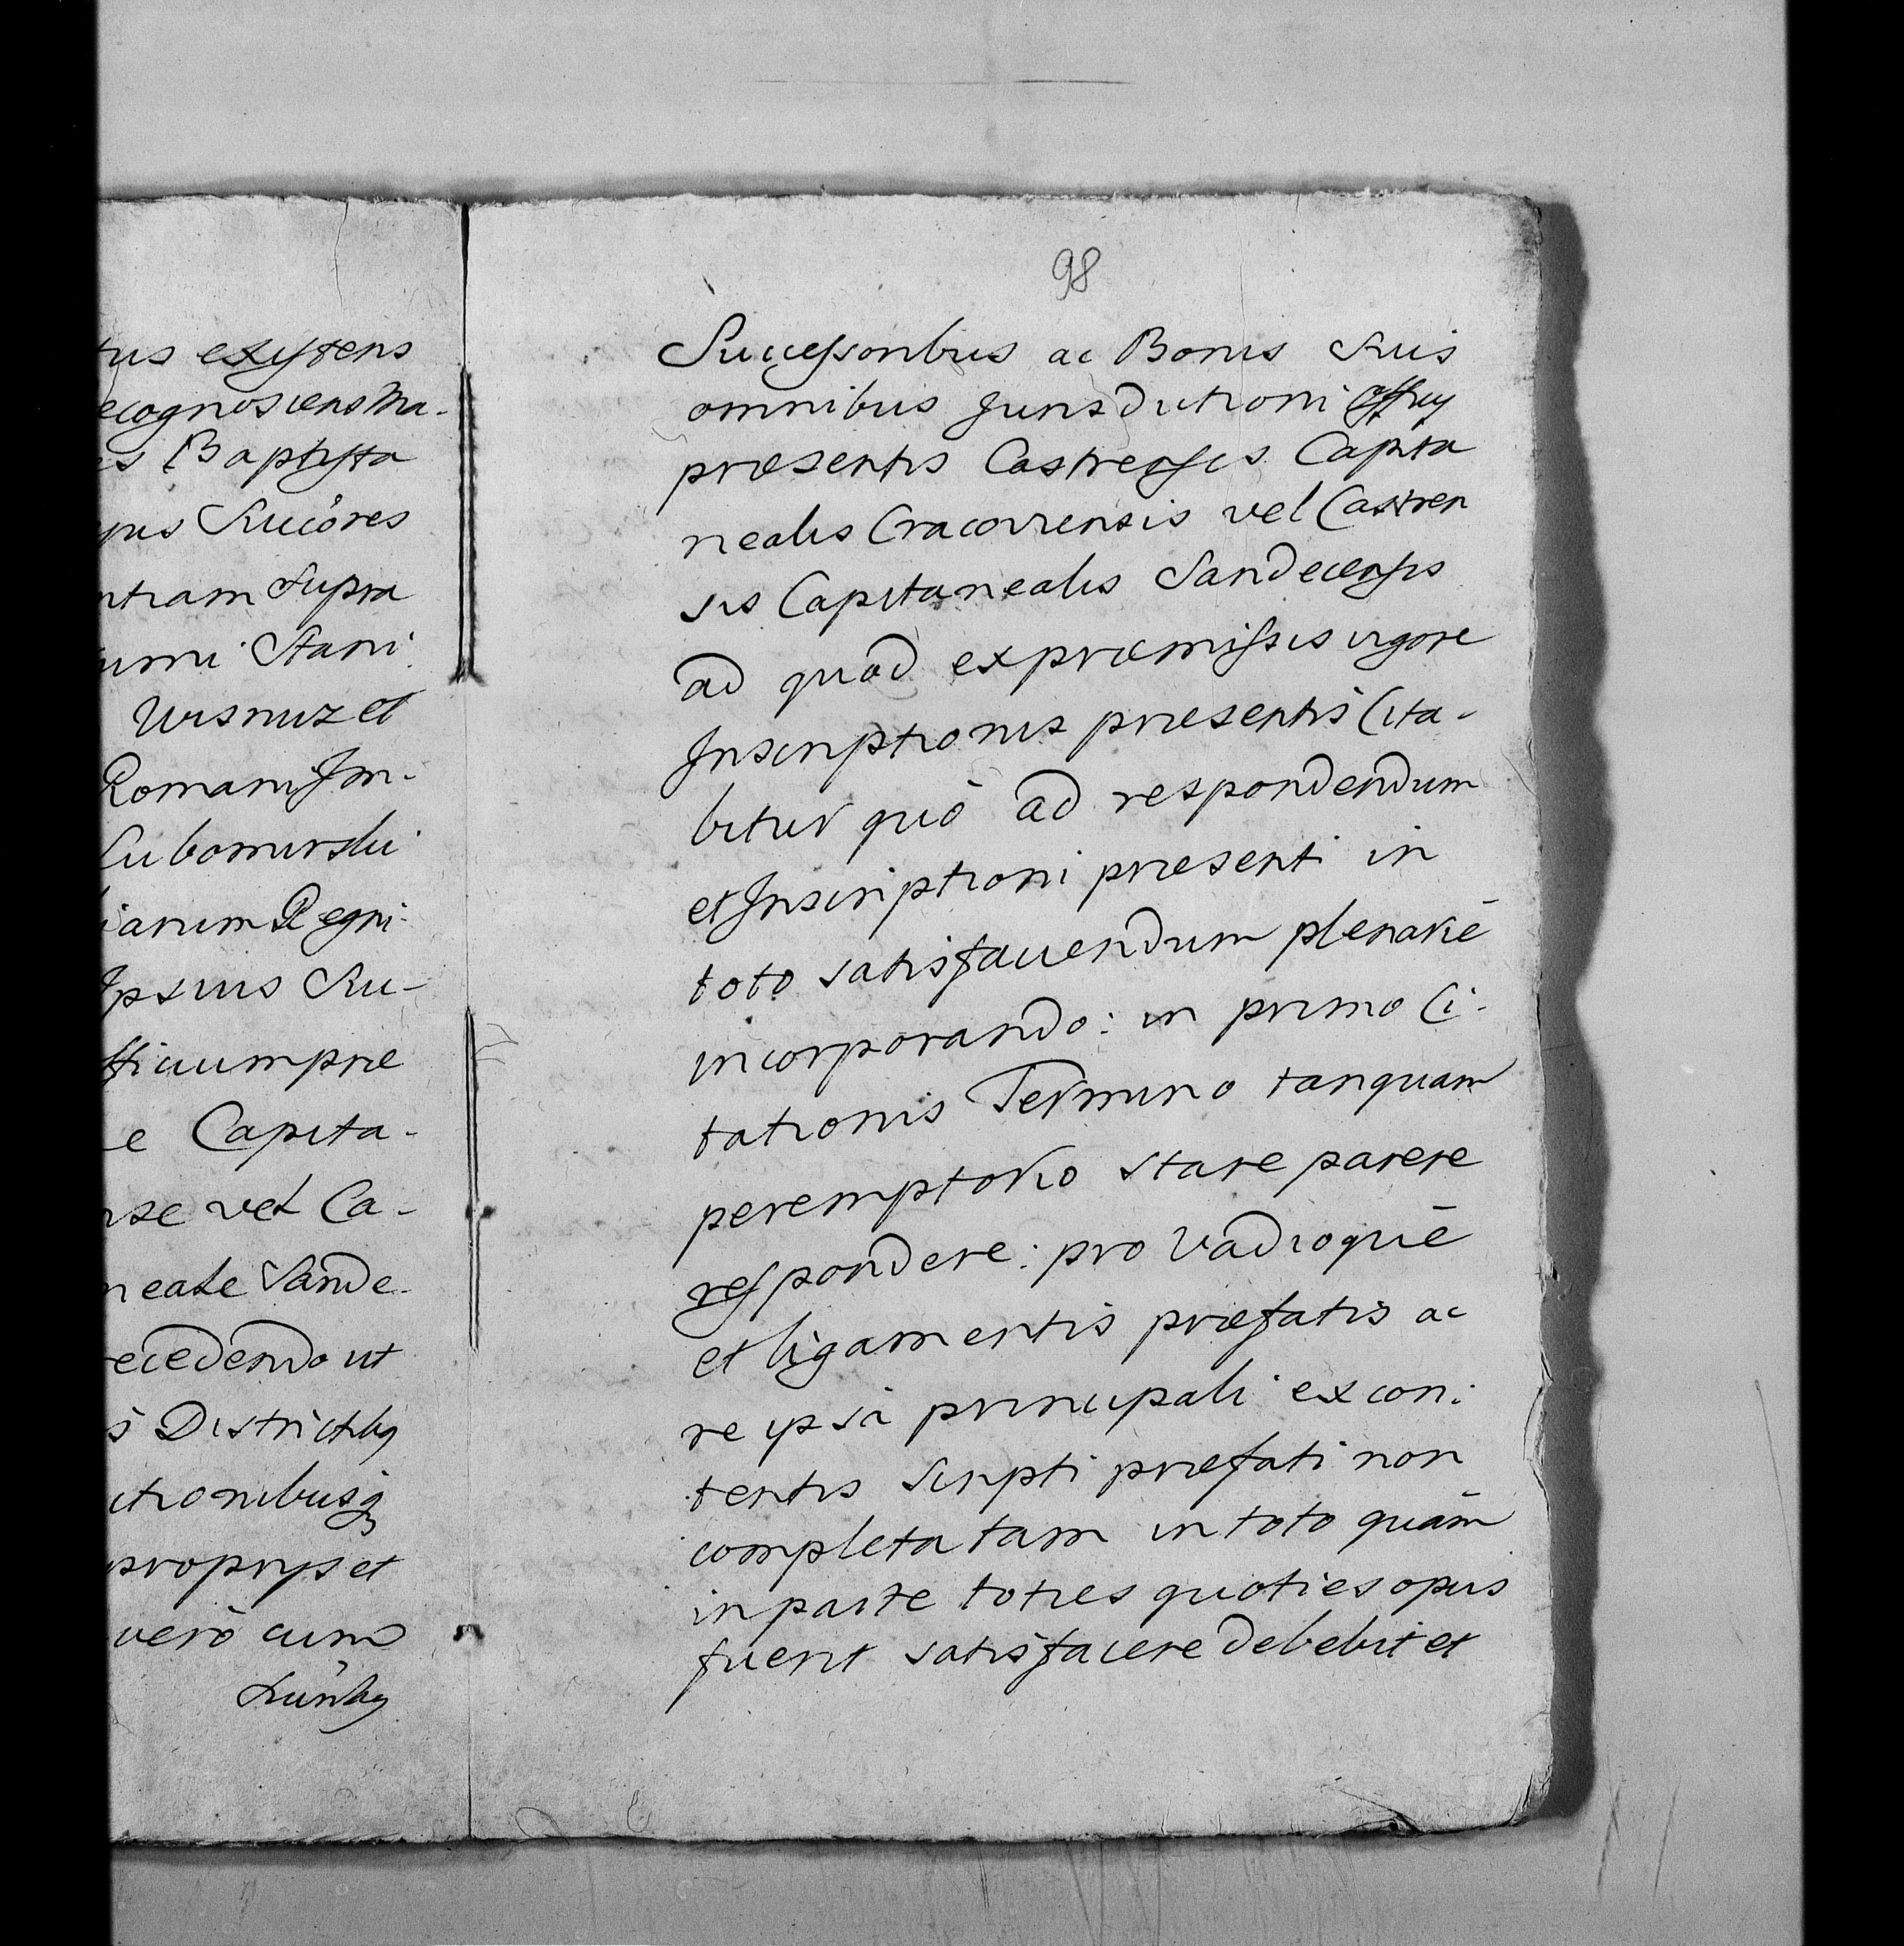 tus existens
ecognoscens Ma-
es Baptista
pus Sucôres
ntiam supra
umi Stani
Wisnicz et
Romani Im-
Lubomirski
iarum Regni
Ipsius Su-
fficium prę
e Capita-
nse vel Ca-
neale Sande-
ecedendo ut
s Districtby
ctionibusq
proprys et
verò cum
Suisby
98
Successoribus ac Bonis suis
omnibus Jurisdictioni Offcy
præsentis Castrensis Capita
nealis Cracoviensis vel Castren
sis Capitanealis Sandecensis
ad quod ex præmissis vigore
Inscriptionis præsentis Cita-
bitur quò ad respondendum
et Inscriptioni præsenti in
toto satisfaciendum plenariè
incorporando: in primo Ci-
tationis Termino tanquam
peremptorio stare parere
respondere: pro Vadioquè
et ligamentis præfatis ac
re ipsa principali ex con-
tentis Scripti præfati non
completa tam in toto quàm
in parte toties quoties opus
fuerit satisfacere debebit et